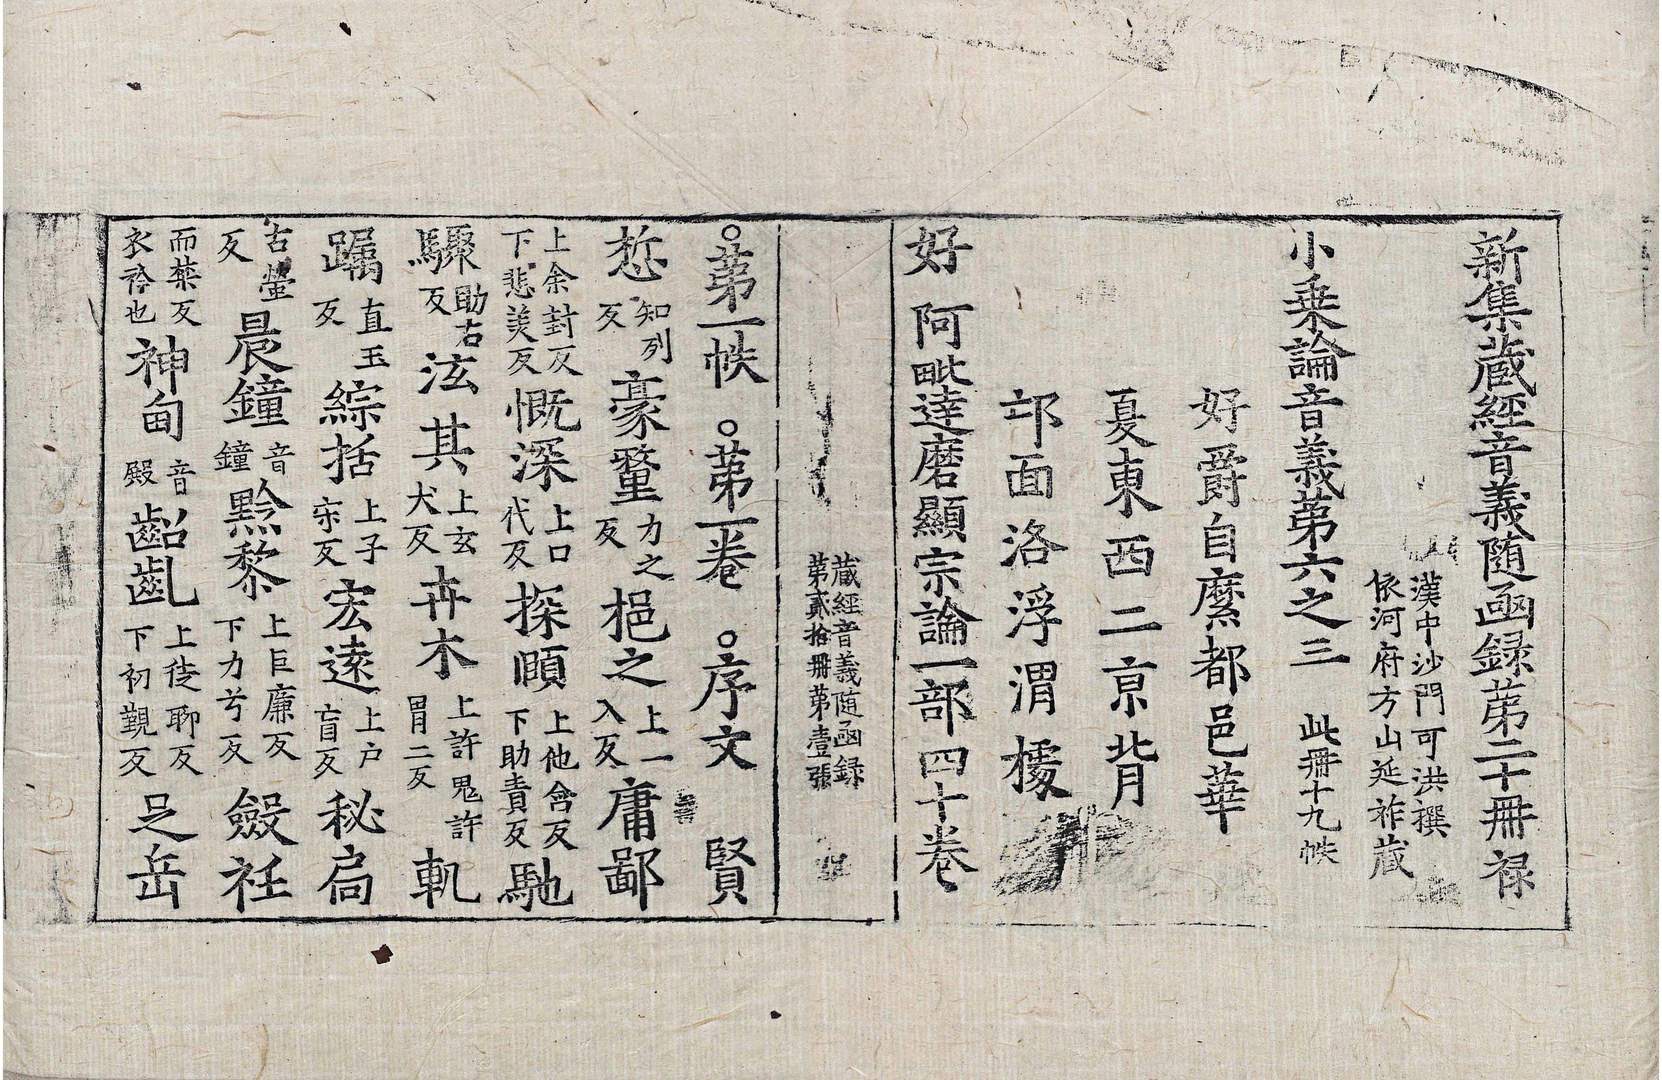 新集蔵經音義随函録苐二十冊 禄
漢中沙門可洪撰
依河府方山延祚蔵
小乗論音義苐六之三 此冊十九帙
好爵自縻都邑華
夏東西二京背
邙面洛浮渭㯫
好 阿毗逹磨顯宗論一部四十卷
蔵經音義随函録
苐貳拾冊苐壹張
○苐一帙 ○苐一卷 ○序文 賢
悊 知列反 豪釐 力之反 挹之 上一入反 庸鄙
上余封反下悲美反 慨深 上口代反 探賾 上他含反下助責反 馳
驟 助右反 泫其 上玄犬反 卉木 上許鬼許胃二反 軌
躅 直玉反 綜括 上子宋反 宏逺 上戸盲反 秘扃
古螢反 晨鐘 音鐘 黔黎 上巨廉反下力兮反 斂衽
而禁反衣衿也 神甸 音殿 齠齔 上徒聊反下初覲反 足岳